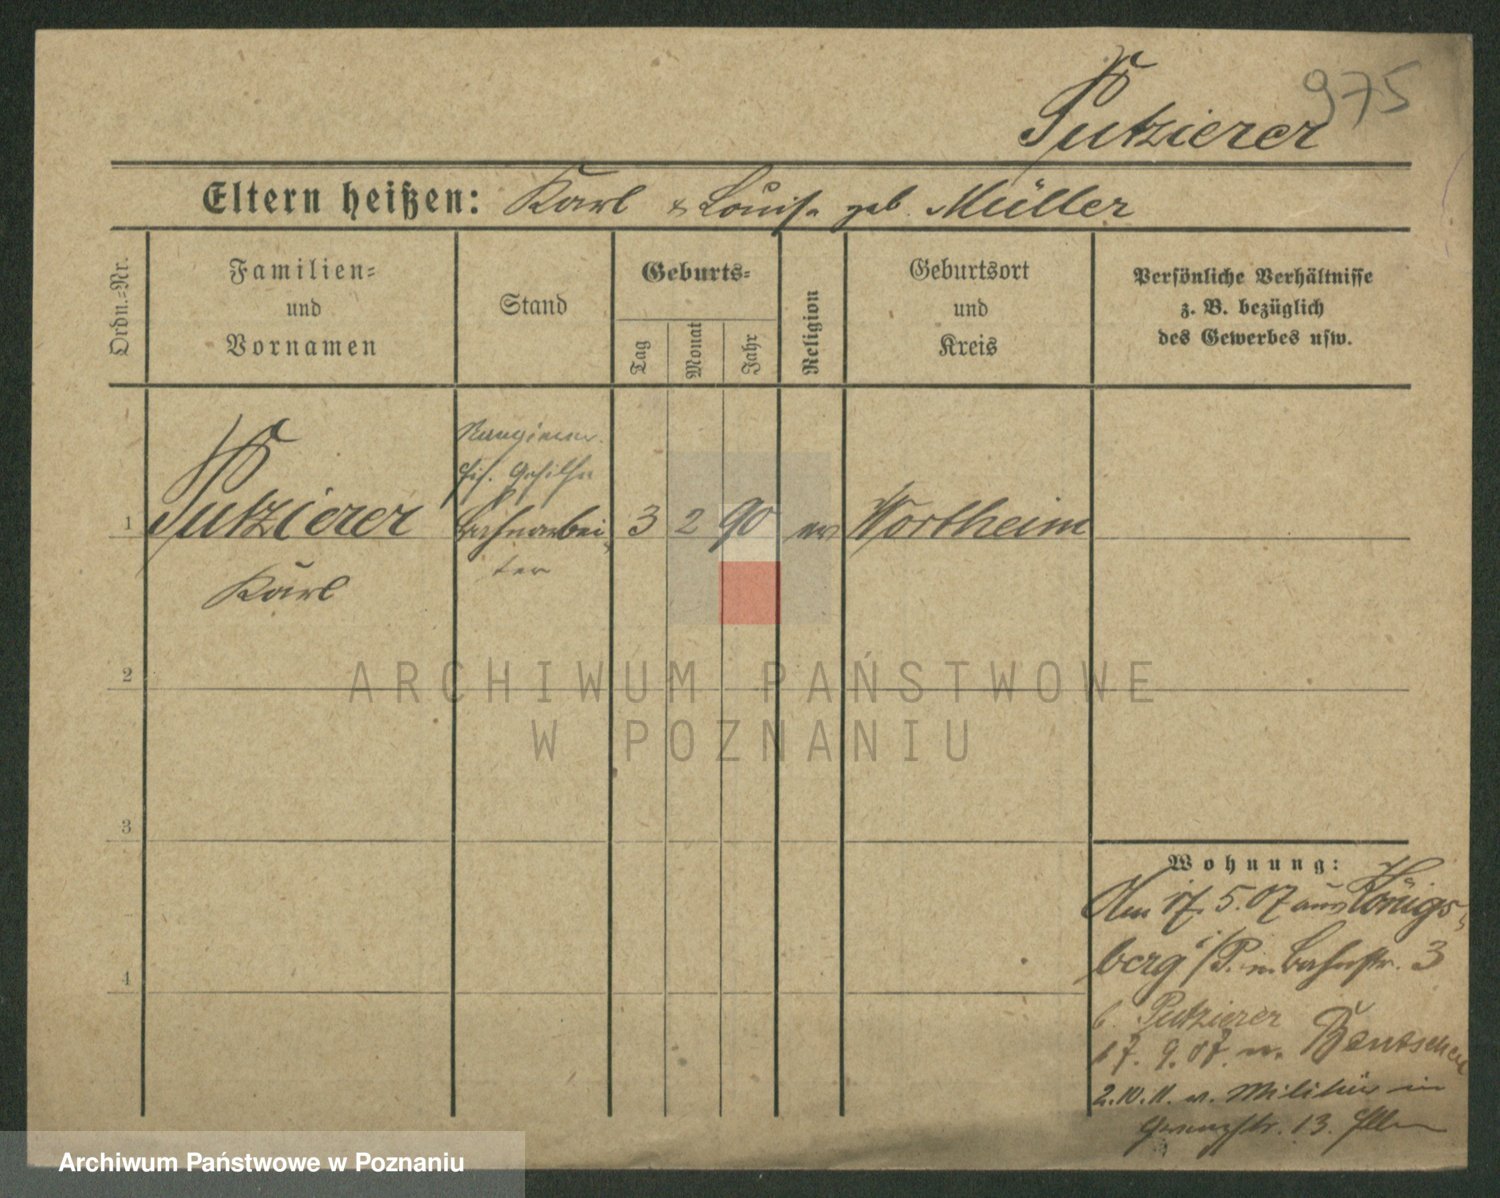 975
Putzierer
Eltern heißen: Karl & Louise geb. Müller
Ordn.-Nr.
Familien-
und
Vornamen
Stand
Geburts-
Tag
Monat
Jahr
Religion
Geburtsort
und
Kreis
Persönliche Verhältnisse
z. B. bezüglich
des Gewerbes usw.
1
Putzierer
Karl
Bahnarbei-
ter
3
2
90
ev
Wortheim
2
3
4
Wohnung:
Am 17. 5. 07 aus Königs-
berg i/P. n. Bahnstr. 3
b. Putzierer
17. 9. 07. n. Bentschen
2.10.11. v. Militär in
13.
ARCHIWUM PAŃSTWOWE
W POZNANIU
Archiwum Państwowe w Poznaniu